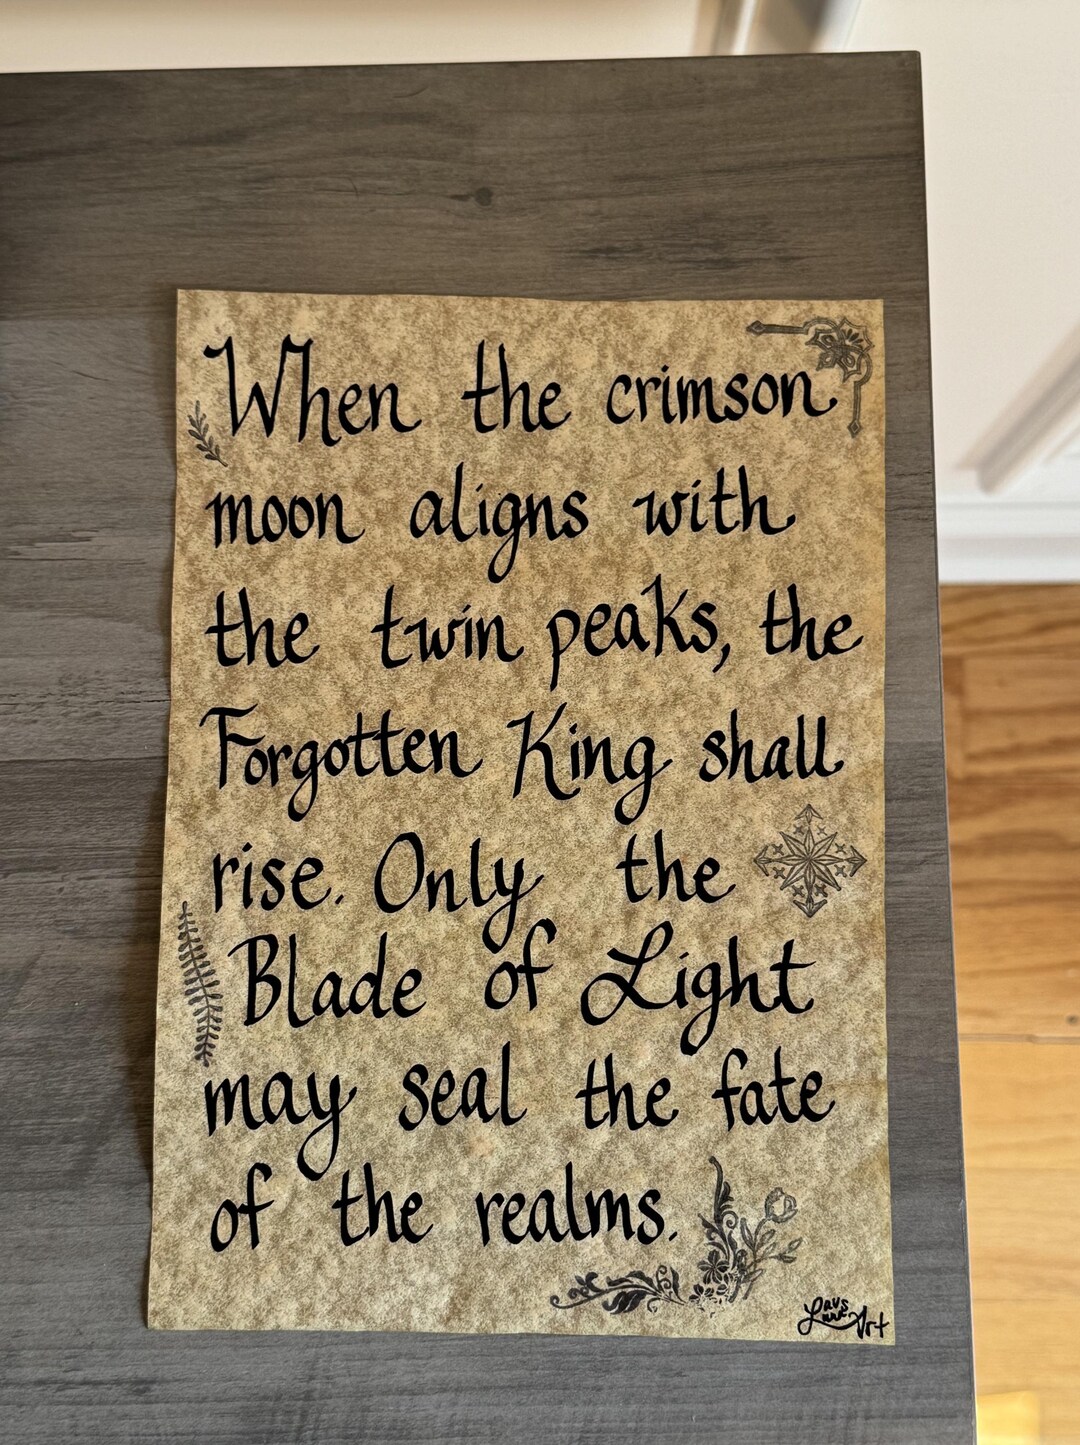 When the crimson
moon aligns with
the twin peaks, the
Forgotten King shall
rise. Only the
Blade of Light
may seal the fate
of the realms.
Art